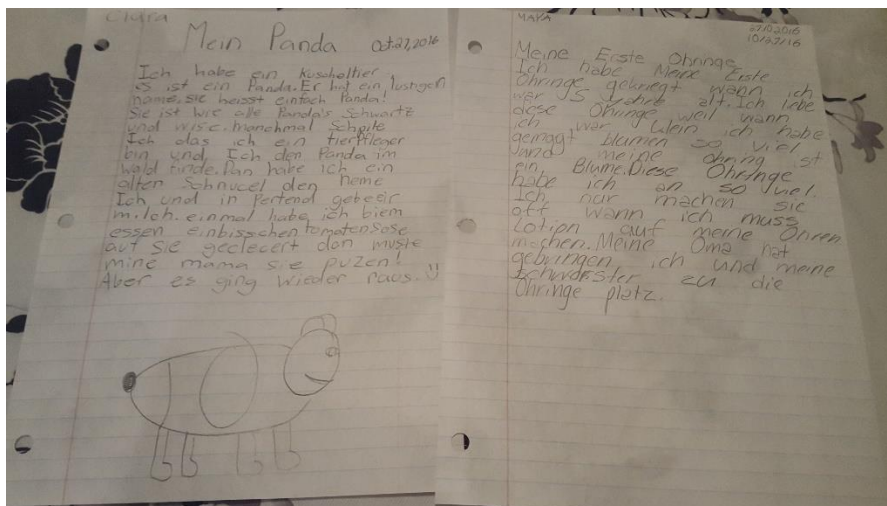 Clara
Mein Panda Oct.27,2016
Ich habe ein kuscheltier
es ist ein Panda. Er hat ein lustigen
name. sie heisst einfach Panda!
Sie ist wie alle Panda's Schwartz
und wise. manchmal Schpile
Ich das ich ein tierPfleger
bin und Ich den Panda im
wald finde. Dan habe ich ein
alten Schnucel den neme
Ich und in Pertend gebeeir
milch. einmal habe ich biem
essen einbisschen tomatensose
auf sie geclecert dan muste
mine mama sie puzen!
Aber es ging wieder raus.
MAYA
27/10 2016
10/27/16
Meine Erste Ohringe
Ich habe Meine Erste
Ohringe gekriegt wann ich
war 5 yahre alt. Ich liebe
diese Ohringe weil wann
ich war klein ich habe
gemagt blumen so viel
und meine ohring ist
ein Blume. Diese Ohringe
habe ich an so viel.
Ich nur machen sie
off wann ich muss
Lotion auf meine Ohren
machen. Meine Oma hat
gebringen ich und meine
Schwester zu die
Ohringe platz.